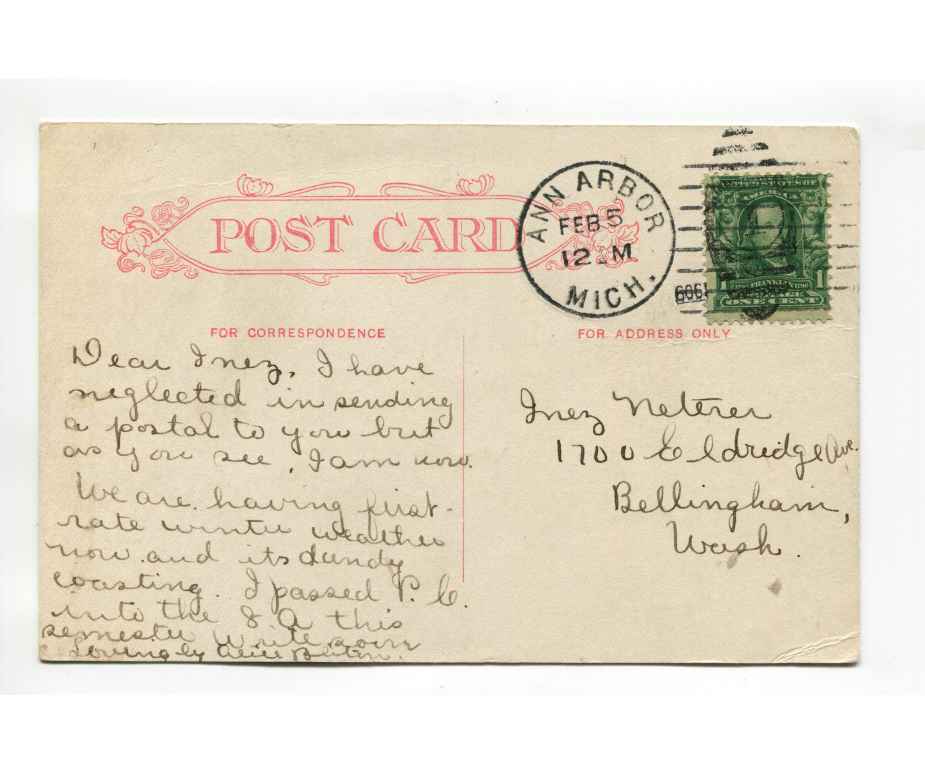 POST CARD
ANN ARBOR
FEB 5
12 M
MICH.
1909
UNITED STATES OF
AMERICA
FRANKLIN
1 1
ONE CENT
FOR CORRESPONDENCE
Dear Inez, I have
neglected in sending
a postal to you but
as you see, I am now.
We are having first-
rate winter weather
now and its dandy
coasting. I passed P. C.
into the 8 A this
semester Write soon
Lovingly Alice
FOR ADDRESS ONLY
Inez Neterer
1700 Eldridge Ave.
Bellingham,
Wash.